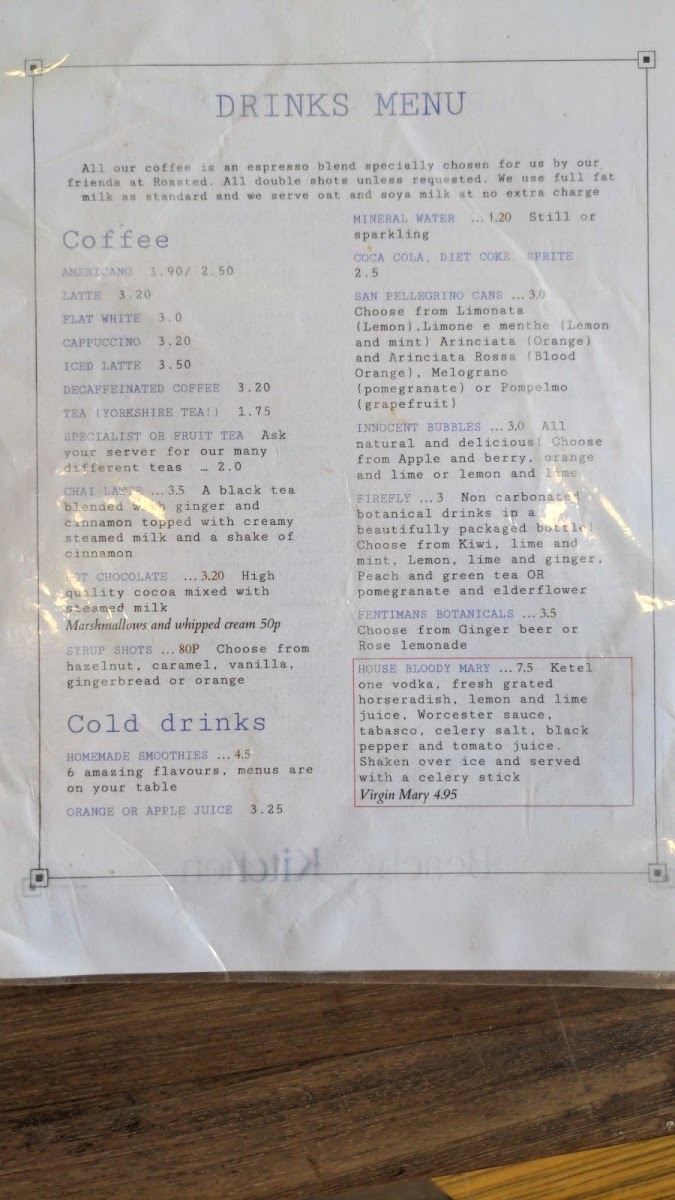 DRINKS MENU
All our coffee is an espresso blend specially chosen for us by our
friends at Roasted. All double shots unless requested. We use full fat
milk as standard and we serve oat and soya milk at no extra charge
Coffee
AMERICANO 1.90/ 2.50
LATTE 3.20
FLAT WHITE 3.0
CAPPUCCINO 3.20
ICED LATTE 3.50
DECAFFEINATED COFFEE 3.20
TEA (YORKSHIRE TEA!) 1.75
SPECIALIST OR FRUIT TEA Ask
your server for our many
different teas … 2.0
CHAI LATTE ...3.5 A black tea
blended with ginger and
cinnamon topped with creamy
steamed milk and a shake of
cinnamon
HOT CHOCOLATE ...3.20 High
quality cocoa mixed with
steamed milk
Marshmallows and whipped cream 50p
SYRUP SHOTS ... 80P Choose from
hazelnut, caramel, vanilla,
gingerbread or orange
Cold drinks
HOMEMADE SMOOTHIES ... 4.5
6 amazing flavours, menus are
on your table
ORANGE OR APPLE JUICE 3.25
MINERAL WATER ...1.20 Still or
sparkling
COCA COLA, DIET COKE, SPRITE
2.5
SAN PELLEGRINO CANS ...3.0
Choose from Limonata
(Lemon),Limone e menthe (Lemon
and mint) Arinciata (Orange)
and Arinciata Rossa (Blood
Orange), Melograno
(pomegranate) or Pompelmo
(grapefruit)
INNOCENT BUBBLES ...3.0 All
natural and delicious! Choose
from Apple and berry, orange
and lime or lemon and lime
FIREFLY ...3 Non carbonated
botanical drinks in a
beautifully packaged bottle!
Choose from Kiwi, lime and
mint, Lemon, lime and ginger,
Peach and green tea OR
pomegranate and elderflower
FENTIMANS BOTANICALS ...3.5
Choose from Ginger beer or
Rose lemonade
HOUSE BLOODY MARY ...7.5 Ketel
one vodka, fresh grated
horseradish, lemon and lime
juice, Worcester sauce,
tabasco, celery salt, black
pepper and tomato juice.
Shaken over ice and served
with a celery stick
Virgin Mary 4.95
Kitchen